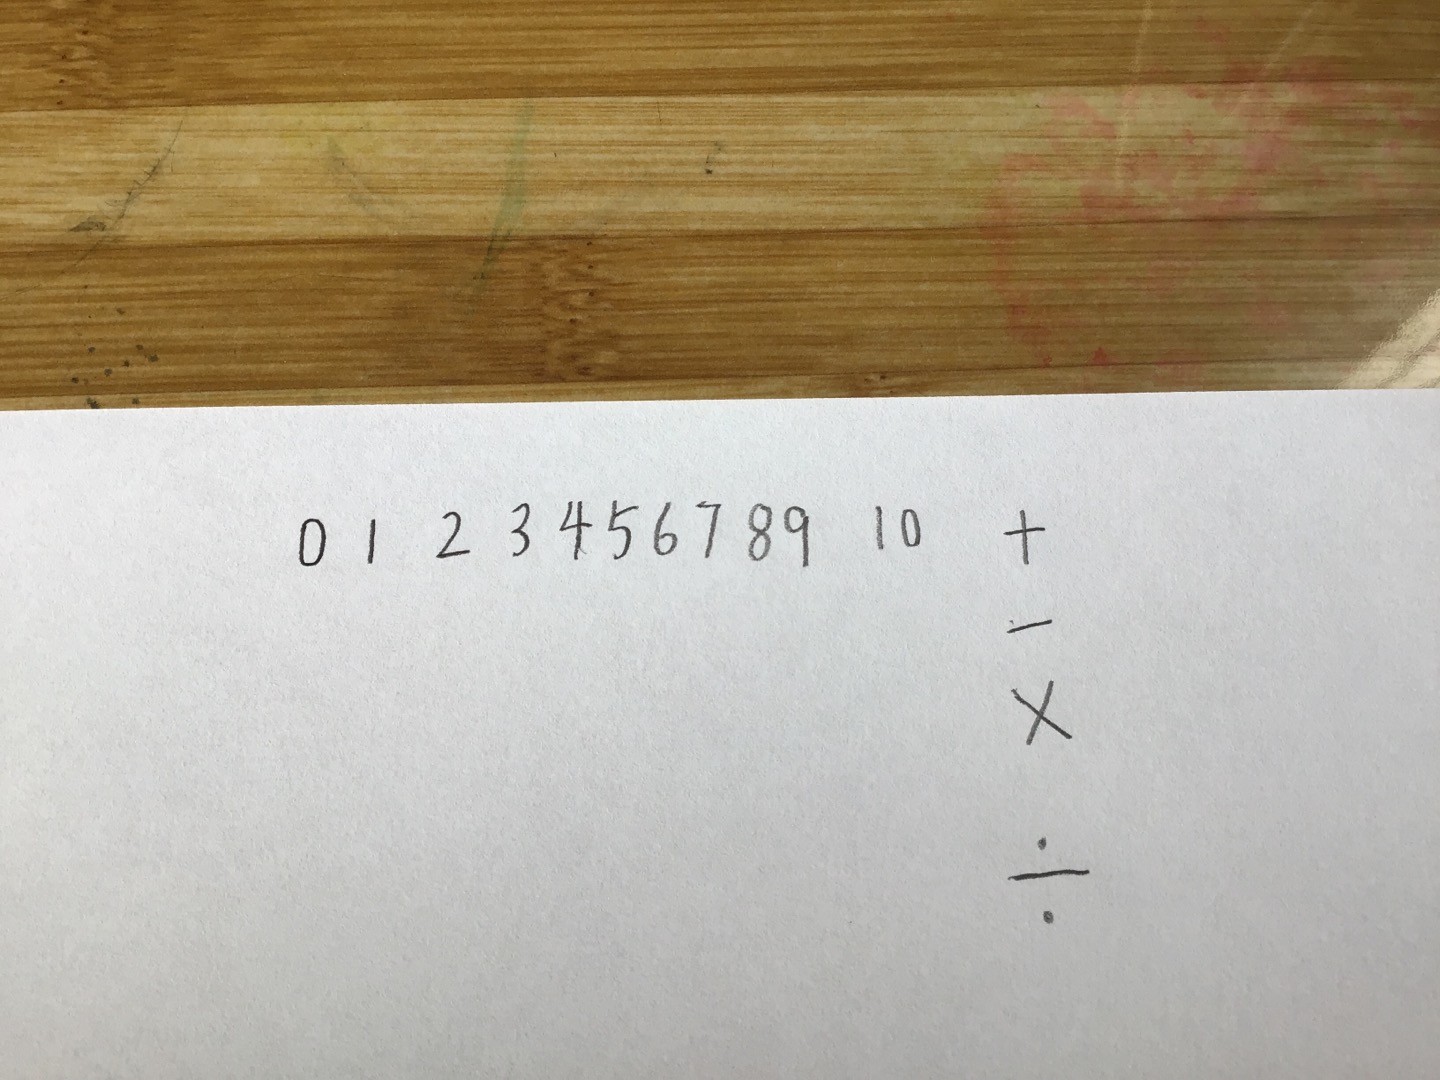 0 1 2 3 4 5 6 7 8 9 10 +
−
×
÷